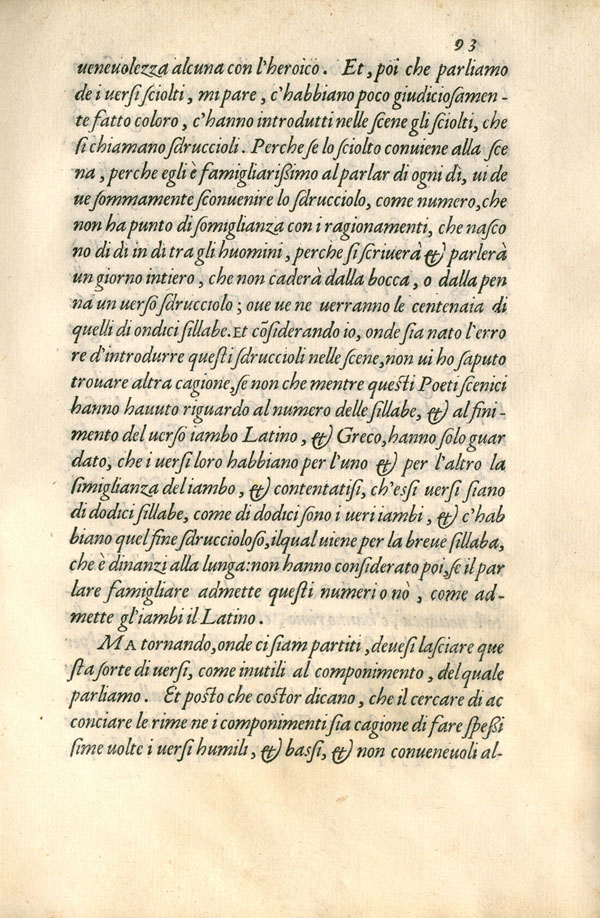 93
ueneuolezza alcuna con l'heroico. Et, poi che parliamo
de i uersi sciolti, mi pare, c'habbiano poco giudiciosamen-
te fatto coloro, c'hanno introdutti nelle scene gli sciolti, che
si chiamano sdruccioli. Perche se lo sciolto conuiene alla sce
na, perche egli è famigliarißimo al parlar di ogni dì, ui de
ue sommamente sconuenire lo sdrucciolo, come numero, che
non ha punto di somiglianza con i ragionamenti, che nasco
no di dì in dì tra gli huomini, perche si scriuerà & parlerà
un giorno intiero, che non caderà dalla bocca, o dalla pen
na un uerso sdrucciolo; oue ue ne uerranno le centenaia di
quelli di ondici sillabe. Et cõsiderando io, onde sia nato l'erro
re d'introdurre questi sdruccioli nelle scene, non ui ho saputo
trouare altra cagione, se non che mentre questi Poeti scenici
hanno hauuto riguardo al numero delle sillabe, & al fini-
mento del uerso iambo Latino, & Greco, hanno solo guar
dato, che i uersi loro habbiano per l'uno & per l'altro la
simiglianza del iambo, & contentatisi, ch'essi uersi siano
di dodici sillabe, come di dodici sono i ueri iambi, & c'hab
biano quel fine sdruccioloso, ilqual uiene per la breue sillaba,
che è dinanzi alla lunga: non hanno considerato poi, se il par
lare famigliare admette questi numeri o nò, come ad-
mette gl'iambi il Latino.
MA tornando, onde ci siam partiti, deuesi lasciare que
sta sorte di uersi, come inutili al componimento, del quale
parliamo. Et posto che costor dicano, che il cercare di ac
conciare le rime ne i componimenti sia cagione di fare speßi
sime uolte i uersi humili, & bassi, & non conueneuoli al-